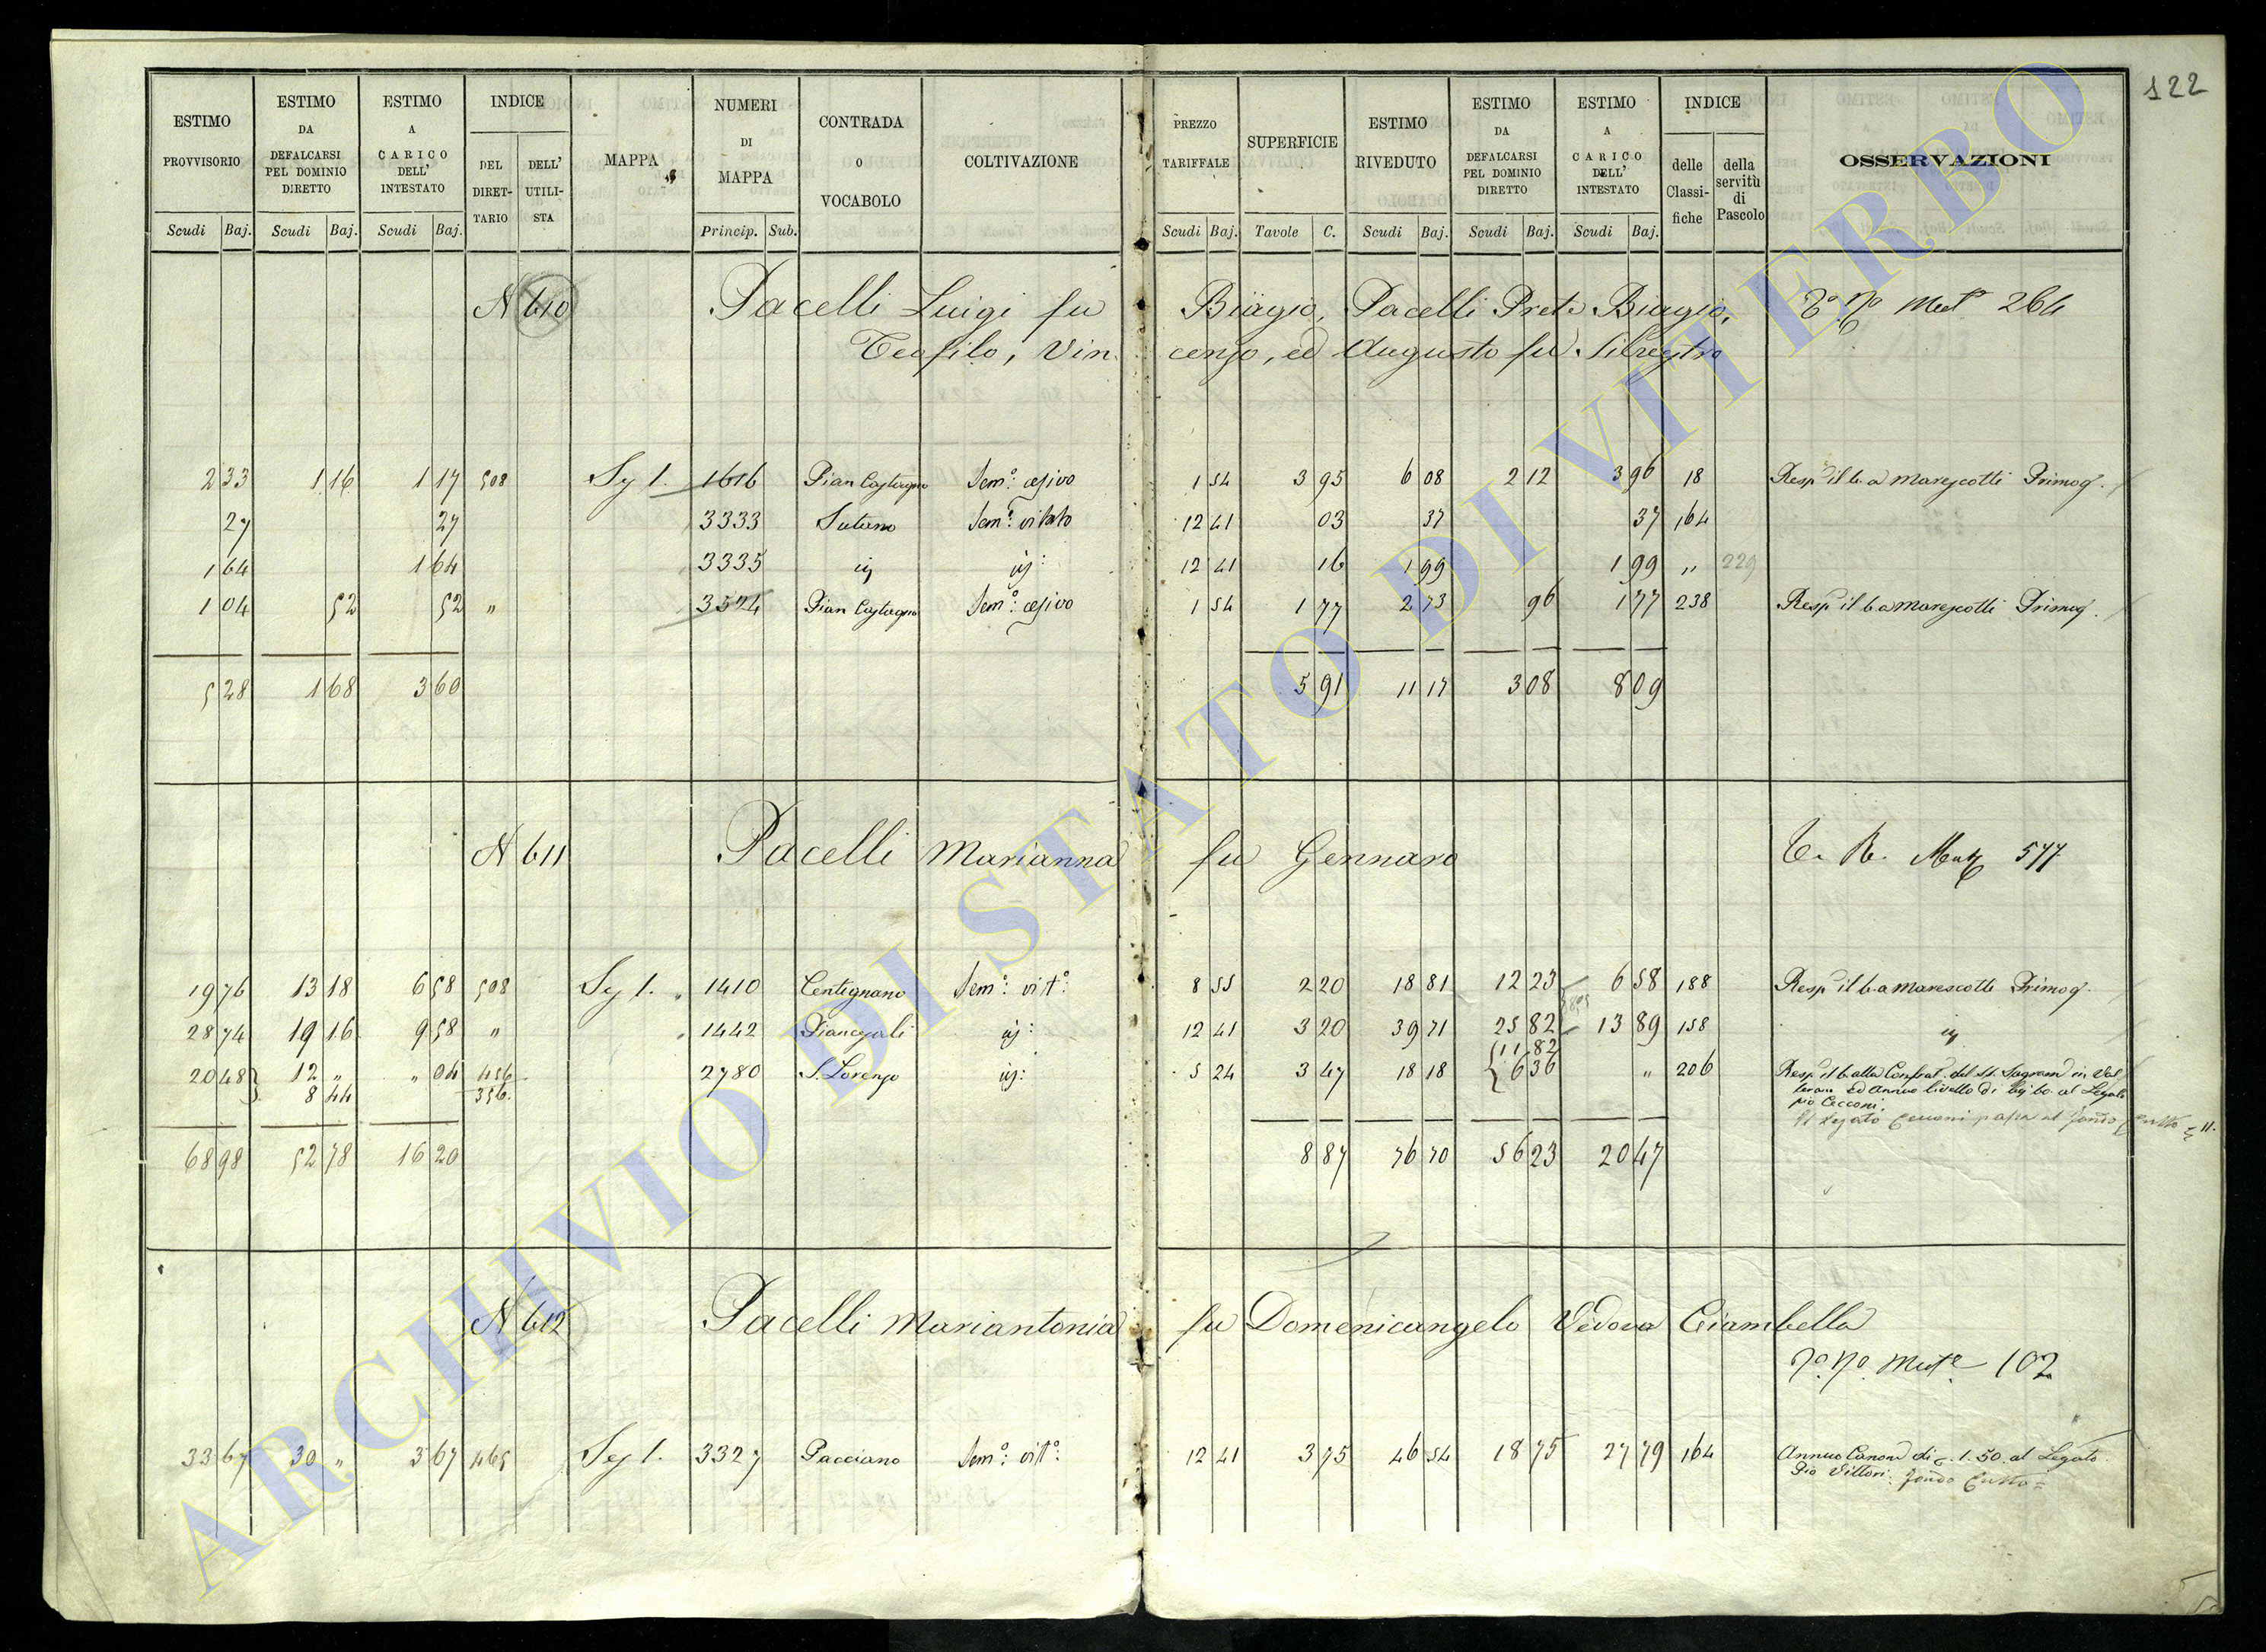 122
ESTIMO PROVVISORIO Scudi Baj.
ESTIMO DA DEFALCARSI PEL DOMINIO DIRETTO Scudi Baj.
ESTIMO A CARICO DELL' INTESTATO Scudi Baj.
INDICE DEL DIRET-TARIO DELL' UTILI-STA
MAPPA
NUMERI DI MAPPA Princip. Sub.
CONTRADA O VOCABOLO
COLTIVAZIONE
PREZZO TARIFFALE Scudi Baj.
SUPERFICIE Tavole C.
ESTIMO RIVEDUTO Scudi Baj.
ESTIMO DA DEFALCARSI PEL DOMINIO DIRETTO Scudi Baj.
ESTIMO A CARICO DELL' INTESTATO Scudi Baj.
INDICE delle Classi-fiche della servitù di Pascolo
OSSERVAZIONI
N 610 Pacelli Luigi fu Biagio, Pacelli Prete Biagio, 264
Teofilo, Vincenzo, ed Augusto fu Silvestro
2 33 1 16 1 17 508 Sez 1. 1616 Pian Castagno Sem.° cesivo 1 54 3 95 6 08 2 12 3 96 18 Resp. il b. a Marescotti Primog.
27 27 3333 Sutano Sem.° vitato 12 41 03 37 37 164
1 64 1 64 3335 12 41 16 1 99 1 99 " 229
1 04 52 52 " 3524 Pian Castagno Sem.° cesivo 1 54 1 77 2 73 96 1 77 238 Resp. il b. a Marescotti Primog.
5 28 1 68 3 60 5 91 11 17 3 08 8 09
N 611 Pacelli Marianna fu Gennaro 577
19 76 13 18 6 58 508 Sez 1. 1410 Centignano Sem.° vit.° 8 55 2 20 18 81 12 23 6 58 188 Resp. il b. a Marescotti Primog.
28 74 19 16 9 58 " 1442 12 41 3 20 39 71 25 82 13 89 158
20 48 12 " " 04 456 2780 S. Lorenzo 5 24 3 47 18 18 11 82 " 206 Resp. il b. alla Confrat. del SS. Sagram. in Val
8 44 356 6 36 ed annuo livello di baj. 60 al Legato
pio Cecconi.
Il Legato Cecconi passa al fondo Culto
68 98 52 78 16 20 8 87 76 70 56 23 20 47
N 612 Pacelli Mariantonia fu Domenicangelo Vedova Ciambella
102
33 67 30 " 3 67 465 Sez 1. 3327 Pacciano Sem.° vit.° 12 41 3 75 46 54 18 75 27 79 164 Annuo Canone di 1.50 al Legato
Pio Vittori. fondo Culto
ARCHIVIO DI STATO DI VITERBO